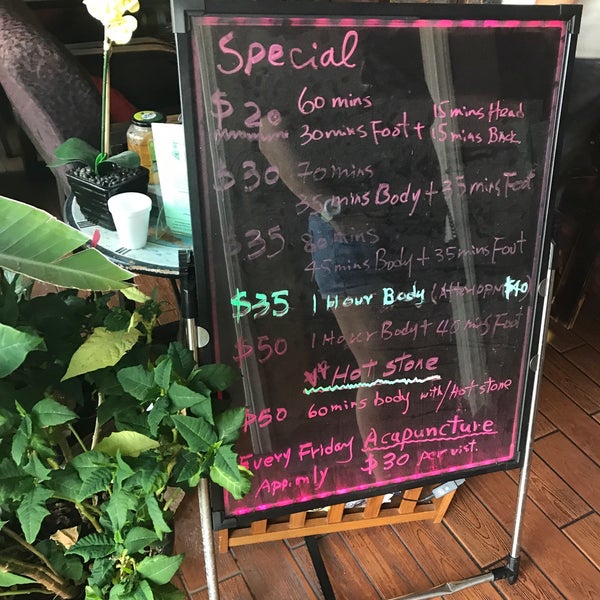 Special
$20 60 mins
15 mins Head
30 mins Foot + 15 mins Back
$30 70 mins
35 mins Body + 35 mins Foot
$35 80 mins
45 mins Body + 35 mins Foot
$35 1 Hour Body $40
$50 1 Hour Body + 40 mins Foot
Hot Stone
$50 60 mins body with/Hot stone
Every Friday Acapuncture
$30 per vist.